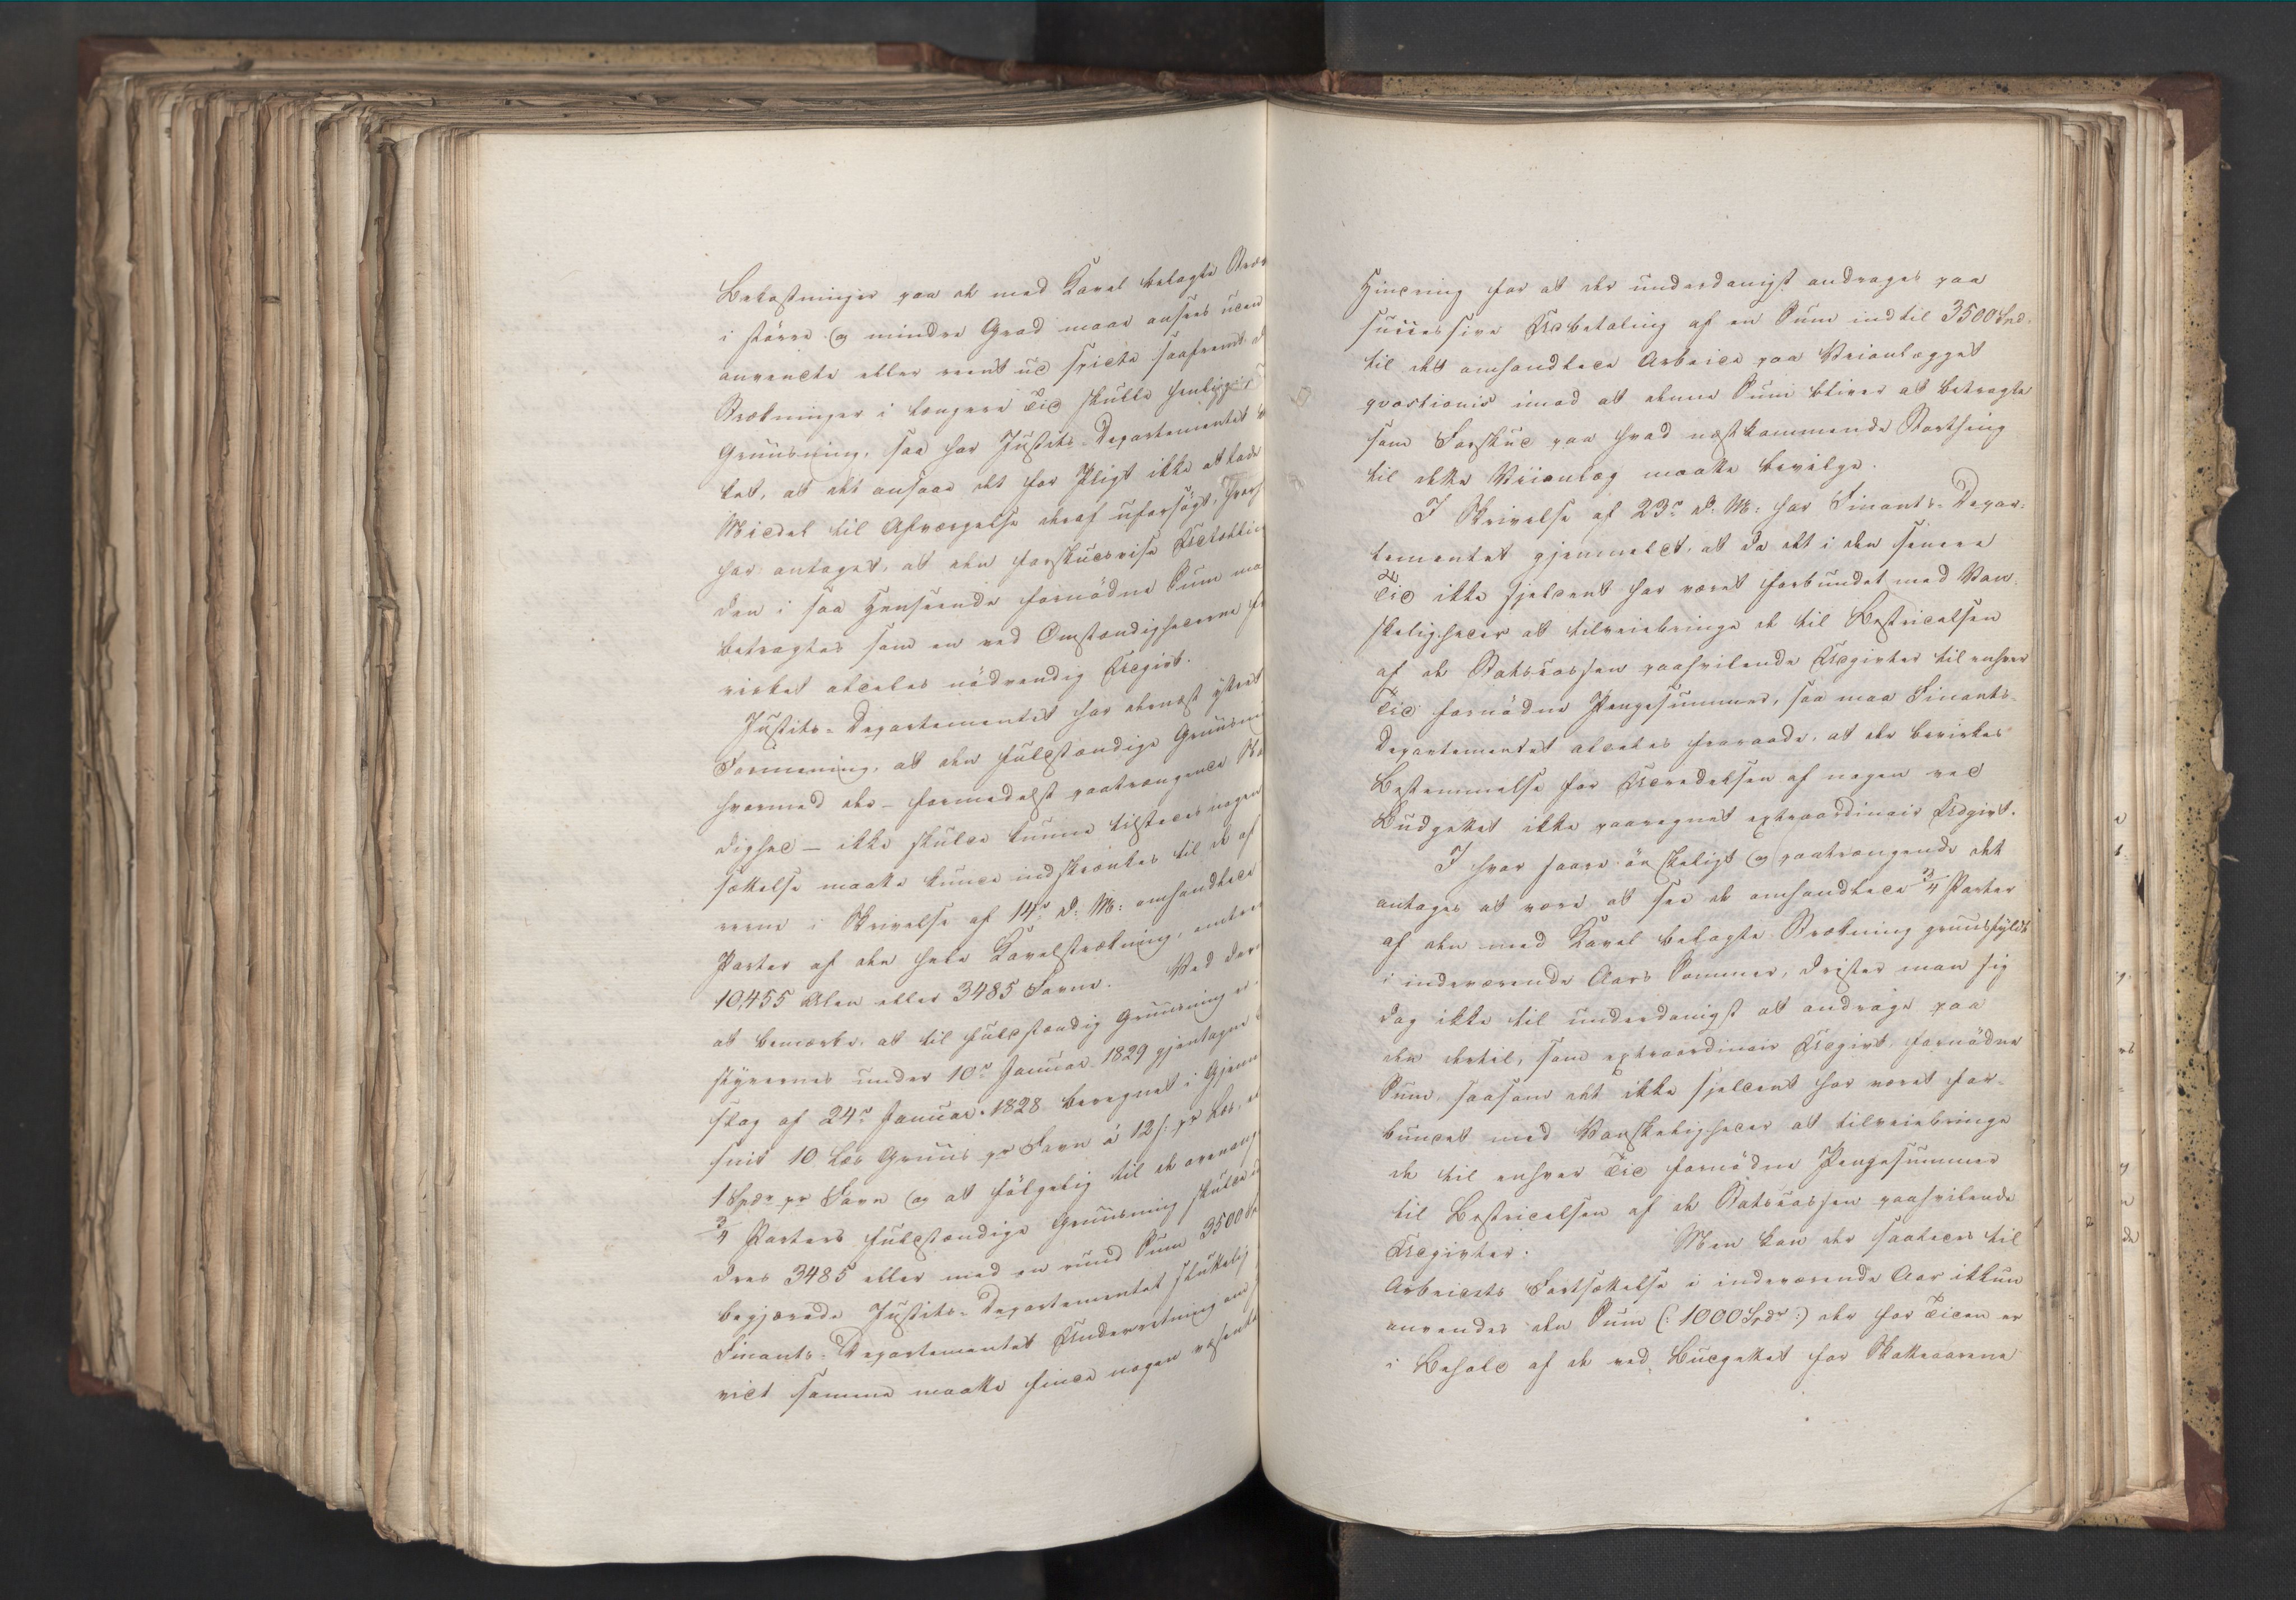 Bekostninger paa de med Kavel belagte Stræk
i större og mindre Grad maae ansees uden
anvendte eller reent ud spildte saafremt d
Strækninger i længere Tid skulle henligge
Gruusning, saa har Justits-Departementet
tet, at det ansaae det for Pligt ikke at lade
Middel til Afværgelse deraf uforsögt, hvor
har antaget, at den forskudsvise Udtælling
den i saa Henseende fornödne Sum maa
betragtes som en ved Omstændighederne
virket aldeles nödvendig Udgivt.
Justits-Departementet har dernæst yttret
Formening, at den fuldstændige Gruusni
hvormed der - formedelst paatrængende Nö
dighed - ikke skulde kunne tilstedes nogen
sættelse maatte kunde indskrænkes til de af
rerne i Skrivelse af 14de d: M: omhandlede
Parter af den hele Kavelstrækning, omtre
10,455 Alen eller 3485 Favne. Ved der
at bemærke, at til fuldstændig Gruusning er
styrernes under 10de Januar 1829 gjentagne
slag af 24de Januar 1828 beregnet i Gjenn
snit 10 Læs Gruus pr Favn á 12 s: pr Læs,
1 Spdr pr Favn og at fölgelig til de ovenom
3/4 Parters fuldstændige Gruusning skulde
dres 3485 eller med en rund Sum 3500 Sp
begjærede Justits-Departementet sluttelig
Finants-Departementet Underretning om
vidt samme maatte finde nogen væsentl
Hindring for at der underdanigst andrages paa
successive Udbetaling af en Sum indtil 3500 Spd.
til det omhandlede Arbeide paa Veianlægget
qvæstionis imod at denne Sum bliver at betragte
som Forskud paa hvad næstkommende Storthing
til dette Veianlæg maatte bevilge.
I Skrivelse af 23de d: M: har Finants-Depar-
tementet gjenmeldt, at da det i den senere
Tid ikke sjeldent har været forbundet med Van-
skeligheder at tilveiebringe de til Bestridelsen
af de Statscassen paahvilende Udgivter til enhver
Tid fornödne Pengesummer, saa maa Finants-
Departementet aldeles fraraade, at der bevirkes
Bestemmelse for Udredelsen af nogen ved
Budgettet ikke paaregnet extraordinair Udgivt.
I hvor saare önskeligt og paatrængende det
antages at være at see de omhandlede 3/4 Parter
af den med Kavel belagte Strækning gruusfyldt
i indeværende Aars Sommer, drister man sig
dog ikke til underdanigst at andrage paa
den dertil, som extraordinair Udgivt, fornödne
Sum, saasom det ikke sjeldent har været for-
bundet med Vanskeligheder at tilveiebringe
de til enhver Tid fornödne Pengesummer
til Bestridelsen af de Statscassen paahvilende
Udgivter: Men kan der saaledes til
Arbeidets Fortsættelse i indeværende Aar ikkun
anvendes den Sum (: 1000 Spdr :) der for Tiden er
i Behold af de ved Budgettet for Skatteaarene